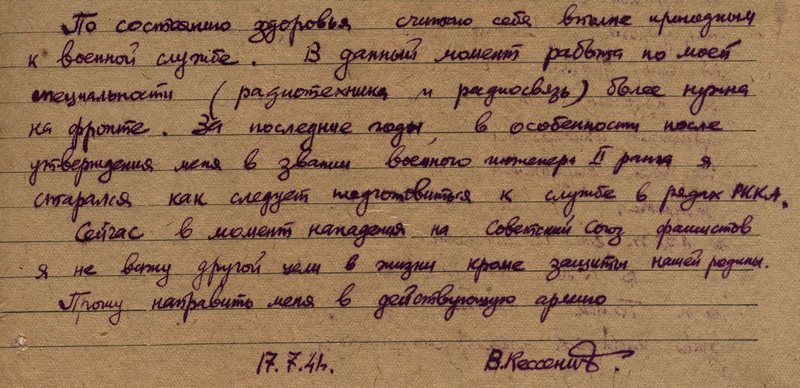 По состоянию здоровья считаю себя вполне пригодным
к военной службе. В данный момент работа по моей
специальности (радиотехника и радиосвязь) более нужна
на фронте. За последние годы, в особенности после
утверждения меня в звании военного инженера II ранга я
старался как следует подготовиться к службе в рядах РККА.
Сейчас в момент нападения на Советский Союз фашистов
я не вижу другой цели в жизни кроме защиты нашей родины.
Прошу направить меня в действующую армию
17.7.41. В.Кессених.